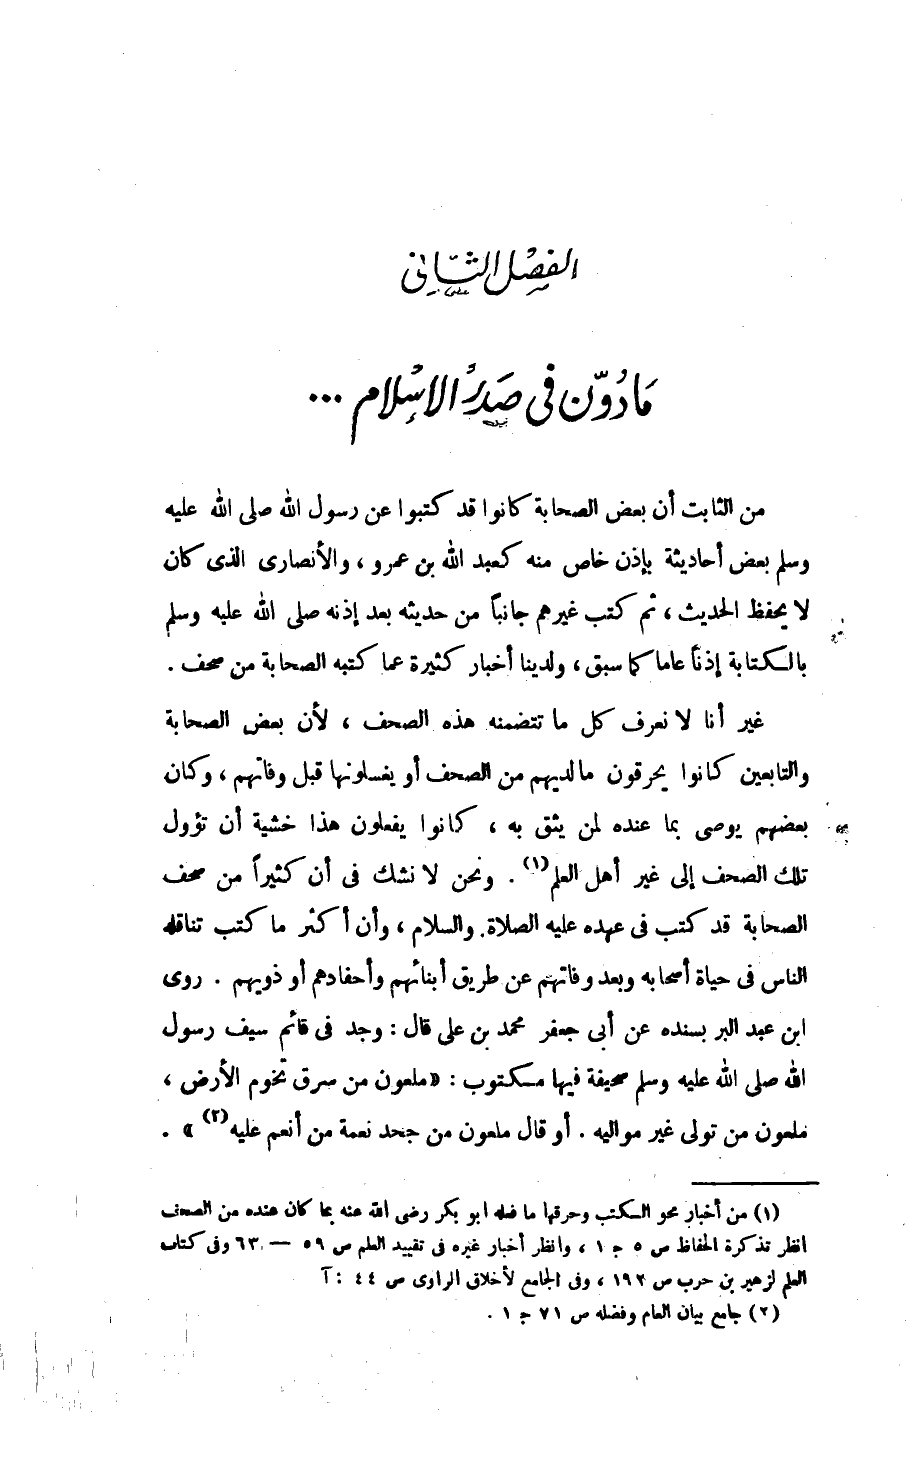 الفصل الثاني
ما دُوّن في صدر الإسلام ...
من الثابت أن بعض الصحابة كانوا قد كتبوا عن رسول الله صلى الله عليه
وسلم بعض أحاديثة بإذن خاص منه كعبد الله بن عمرو ، والأنصارى الذى كان
لا يحفظ الحديث ، ثم كتب غيرهم جانباً من حديثه بعد إذنه صلى الله عليه وسلم
بالكتابة إذناً عاما كما سبق ، ولدينا أخبار كثيرة عما كتبه الصحابة من صحف .
غير أنا لا نعرف كل ما تتضمنه هذه الصحف ، لأن بعض الصحابة
والتابعين كانوا يحرقون ما لديهم من الصحف أو يغسلونها قبل وفاتهم ، وكان
بعضهم يوصى بما عنده لمن يثق به ، كانوا يفعلون هذا خشية أن تؤول
تلك الصحف إلى غير أهل العلم (١) . ونحن لا نشك فى أن كثيراً من صحف
الصحابة قد كتب فى عهده عليه الصلاة والسلام ، وأن أكثر ما كتب تناقله
الناس فى حياة أصحابه وبعد وفاتهم عن طريق أبنائهم وأحفادهم أو ذويهم . روى
ابن عبد البر بسنده عن أبى جعفر محمد بن على قال : وجد فى قائم سيف رسول
الله صلى الله عليه وسلم صحيفة فيها مكتوب : « ملعون من سرق تخوم الأرض ،
ملعون من تولى غير مواليه . أو قال ملعون من جحد نعمة من أنعم عليه (٢) » .
(١) من أخبار محو الكتب وحرقها ما فعله ابو بكر رضى الله عنه بما كان عنده من الصحف
انظر تذكرة الحفاظ ص ٥ ج ١ ، وانظر أخبار غيره فى تقييد العلم ص ٥٩ — ٦٣ وفى كتاب
العلم لزهير بن حرب ص ١٩٢ ، وفى الجامع لأخلاق الراوى ص ٤٤ : آ
(٢) جامع بيان العلم وفضله ص ٧١ ج ١ .